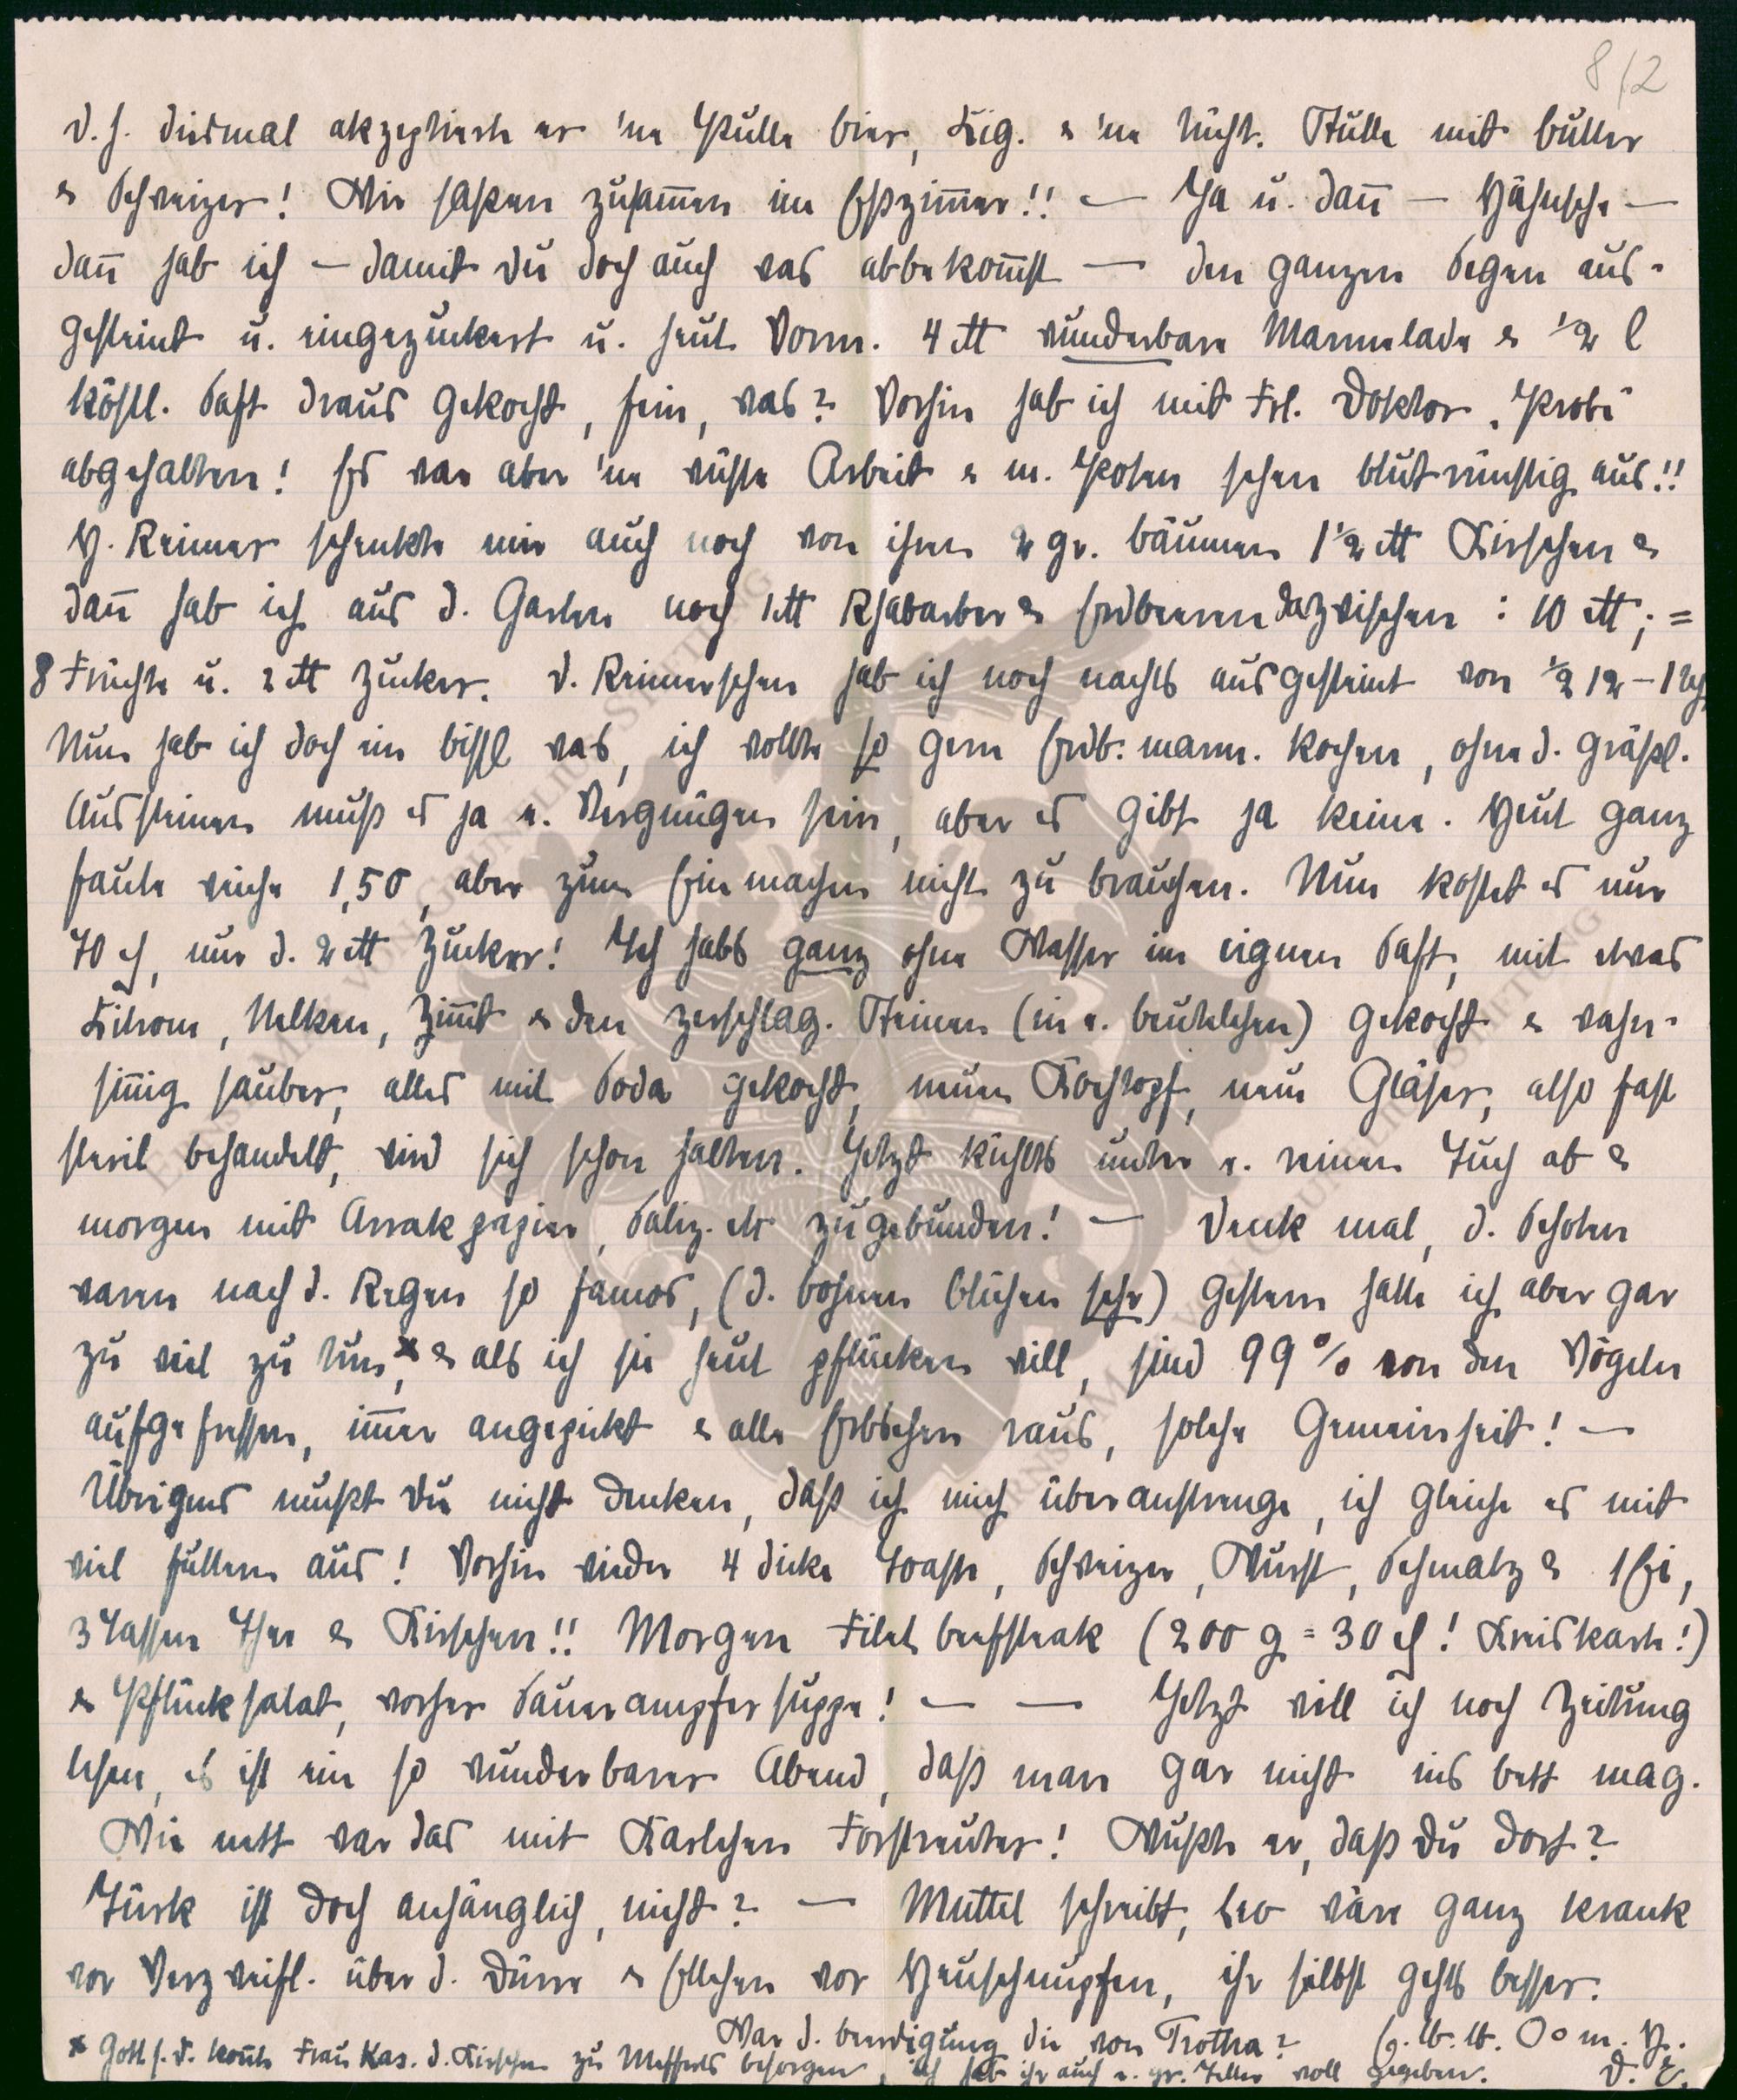 8/2
d. h. diesmal akzeptierte er 'ne Pulle Bier, Zig. & 'ne tücht. Stulle mit Butter
& Schweizer! Wir saßen zusam̅en im Eßzim̅er!! — Ja u. dan̅ — Hähnsche —
dan̅ hab ich — damit Du doch auch was abbekom̅st — den ganzen Segen aus-
gesteint u. eingezuckert u. heut Vorm. 4 ℔ wunderbare Marmelade & ½ l
köstl. Saft draus gekocht, fein, was? Vorhin hab ich mit Frl. Doktor „Probe“
abgehalten! Es war aber 'ne wüste Arbeit & m. Poten sehen blutrünstig aus!!
H. Reimer schenkte mir auch noch von ihren 2 gr. Bäumen 1½ ℔ Kirschen &
dan̅ hab ich aus d. Garten noch 1 ℔ Rhabarber & Erdbeeren dazwischen: 10 ℔; =
8 Früchte u. 2 ℔ Zucker. D. Reimerschen hab ich noch nachts ausgesteint von ½ 12 – 1 Uhr
Nun hab ich doch ein bissl was, ich wollte so gern Erdb. marm. kochen, ohne d. gräßl.
Aussteinen muß es ja e. Vergnügen sein, aber es gibt ja keine. Heut ganz
faule weiche 1,50, aber zum Einmachen nicht zu brauchen. Nun kostet es nur
70 ₰, nur d. 2 ℔ Zucker! Ich habs ganz ohne Wasser im eignen Saft, mit etwas
Zitrone, Nelken, Zim̅t & den zerschlag. Steinen (in e. Beutelchen) gekocht & wahn-
sin̅ig sauber, alles mit Soda gekocht, neuen Kochtopf, neue Gläser, also fast
steril behandelt, wird sich schon halten. Jetzt kühlts unter e. reinen Tuch ab &
morgen mit Arrakpapier, Saliz. etc zugebunden! — Denk mal, d. Schoten
waren nach d. Regen so famos, (d. Bohnen blühen sehr) gestern hatte ich aber gar
zu viel zu tun,* & als ich sie heut pflücken will, sind 99 % von den Vögeln
aufgefressen, im̅er angepickt & alle Erbschen raus, solche Gemeinheit! —
Übrigens mußt Du nicht denken, daß ich mich überanstrenge, ich gleiche es mit
viel futtern aus! Vorhin wieder 4 dicke Toaste, Schweizer, Wurst, Schmalz & 1 Ei,
3 Tassen Tee & Kirschen!! Morgen Filetbeefsteak (200 g = 30 ₰! Kreiskarte!)
& Pflücksalat, vorher Sauerampfersuppe! — — Jetzt will ich noch Zeitung
lesen, es ist ein so wunderbarer Abend, daß man gar nicht ins Bett mag.
Wie nett war das mit Karlchen Forstreuter! Wußte er, daß Du dort?
Türk ist doch anhänglich, nicht? — Muttel schreibt, Leo wäre ganz krank
vor Verzweifl. über d. Dürre & Ellchen vor Heuschnupfen, ihr selbst gehts besser.
War d. Beerdigung die von Trotha? G. lb. lb. O o m. H.
* Gott s. D. kon̅te Frau Kas. d. Kirschen zu Mefferts besorgen, ich hab ihr auch e. gr. Teller voll gegeben. D. E.